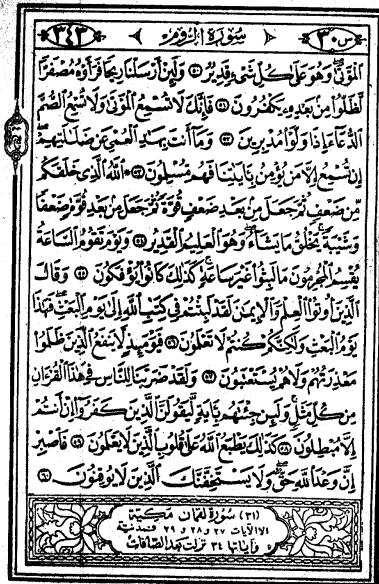 س ٣٠ سورة الروم ٣٤٣
الموتى وهو على كل شيء قدير ٥٠ ولئن أرسلنا ريحا فرأوه مصفرا
لظلوا من بعده يكفرون ٥١ فإنك لا تسمع الموتى ولا تسمع الصم
الدعاء إذا ولوا مدبرين ٥٢ وما أنت بهاد العمي عن ضلالتهم
إن تسمع إلا من يؤمن بآياتنا فهم مسلمون ٥٣ الله الذي خلقكم
من ضعف ثم جعل من بعد ضعف قوة ثم جعل من بعد قوة ضعفا
وشيبة يخلق ما يشاء وهو العليم القدير ٥٤ ويوم تقوم الساعة
يقسم المجرمون ما لبثوا غير ساعة كذلك كانوا يؤفكون ٥٥ وقال
الذين أوتوا العلم والإيمن لقد لبثتم في كتب الله إلى يوم البعث فهذا
يوم البعث ولكنكم كنتم لا تعلمون ٥٦ فيومئذ لا ينفع الذين ظلموا
معذرتهم ولا هم يستعتبون ٥٧ ولقد ضربنا للناس في هذا القرءان
من كل مثل ولئن جئتهم بآية ليقولن الذين كفروا إن أنتم
إلا مبطلون ٥٨ كذلك يطبع الله على قلوب الذين لا يعلمون ٥٩ فاصبر
إن وعد الله حق ولا يستخفنك الذين لا يوقنون ٦٠
(٣١) سورة لقمان مكية
إلا الآيات ٢٧ و ٢٨ و ٢٩ فمدنية
وآياتها ٣٤ نزلت بعد الصافات